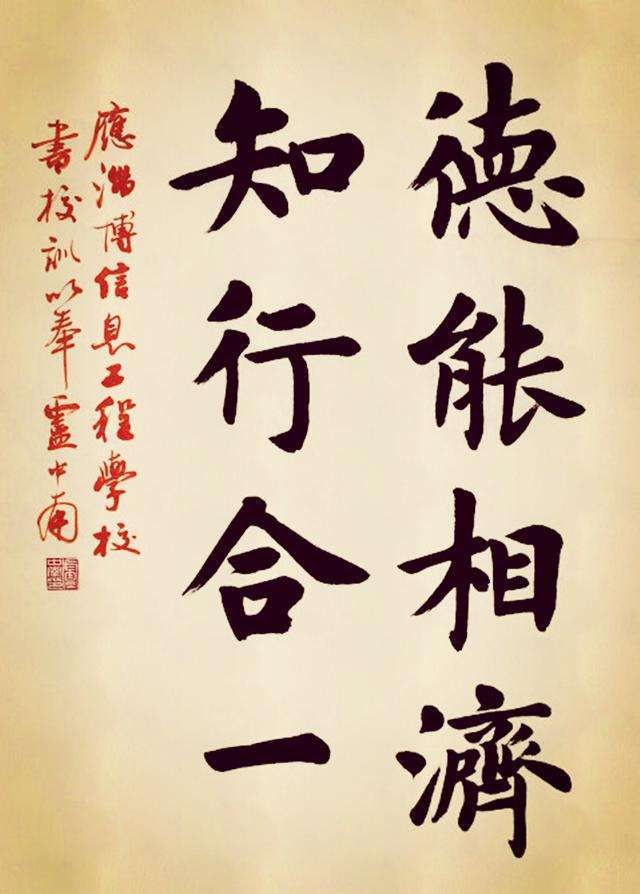 德能相濟
知行合一
應淄博信息工程學校
書校訓以奉盧中南